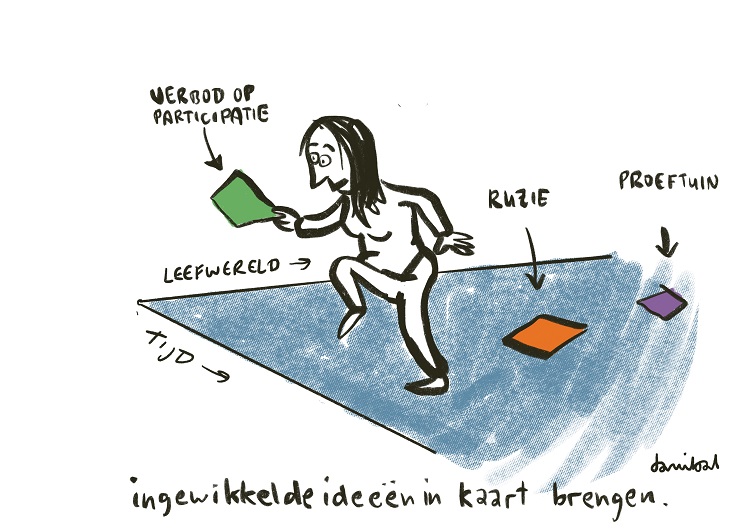 VERBOD OP
PARTICIPATIE
RUZIE
PROEFTUIN
LEEFWERELD →
TIJD →
danibal
ingewikkelde ideeën in kaart brengen.